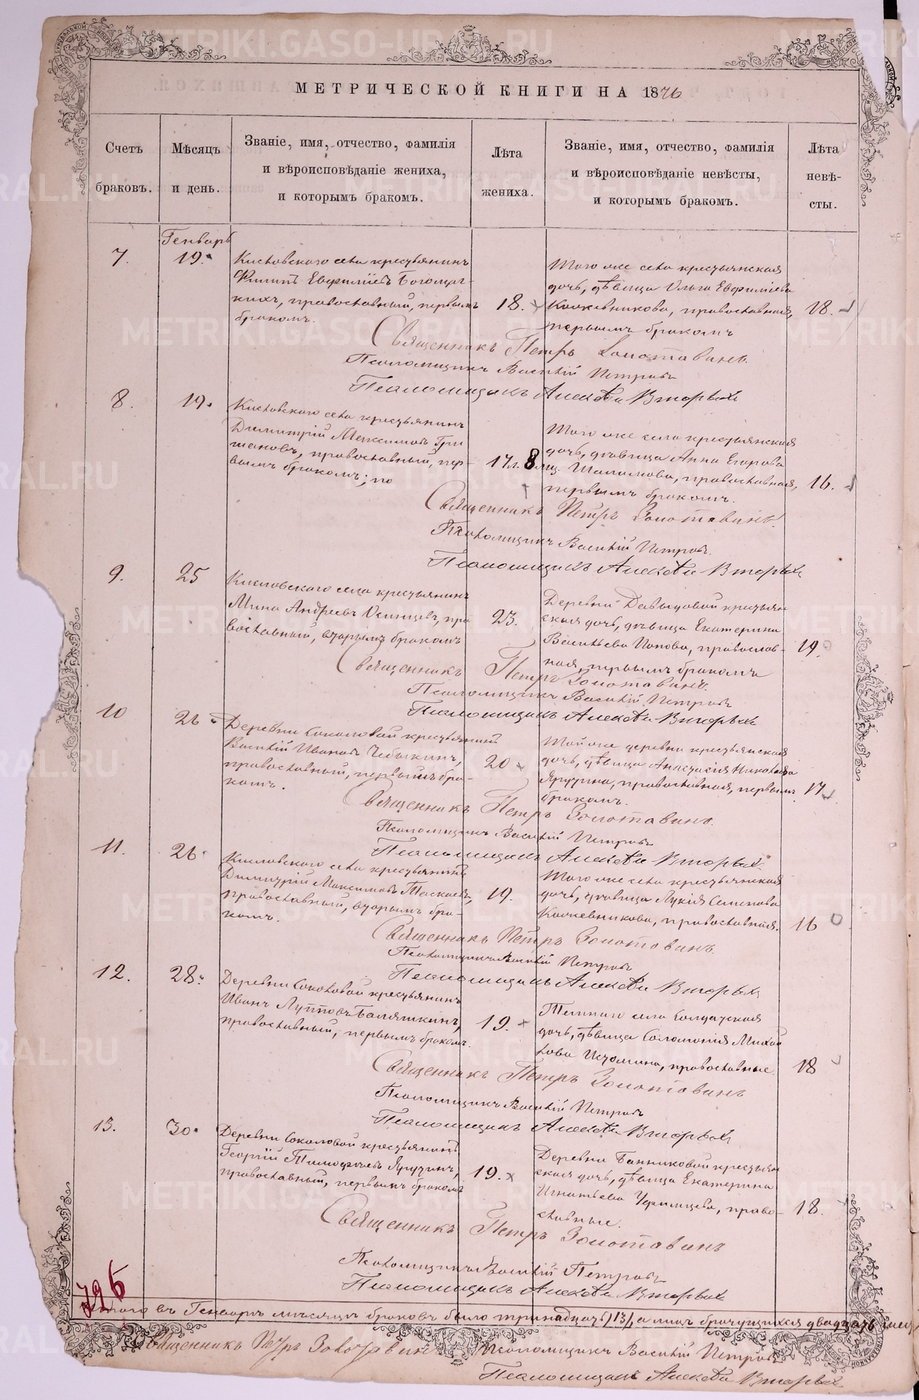 МЕТРИЧЕСКОЙ КНИГИ НА 1876
Счетъ браковъ.
Мѣсяцъ и день.
Званіе, имя, отчество, фамилія
и вѣроисповѣданіе жениха,
и которымъ бракомъ.
Лѣта жениха.
Званіе, имя, отчество, фамилія
и вѣроисповѣданіе невѣсты,
и которымъ бракомъ.
Лѣта невѣ-
сты.
Генварь
7. 19.
Кисловского села крестьянинъ
Филипъ Евфиміевъ
православный, первымъ
бракомъ.
18.
Того же села крестьянская
дочь, дѣвица Ольга Евфиміева
Кожевникова, православная,
первымъ бракомъ
18.
Священникъ Петръ Золотавинъ.
Псаломщикъ Василій Петровъ
Псаломщикъ Алексѣй Вторыхъ
8. 19.
Кисловского села крестьянинъ
Димитрій Максимовъ Гри-
шановъ, православный, пер-
вымъ бракомъ; по
17 л. 8
Того же села крестьянская
дочь, дѣвица Анна Егорова
православная,
первымъ бракомъ.
16.
Священникъ Петръ Золотавинъ.
Псаломщикъ Василій Петровъ.
Псаломщикъ Алексѣй Вторыхъ
9. 25
Кисловского села крестьянинъ
Мина Андреевъ пра-
вославный, вторымъ бракомъ
23.
Деревни Давыдовой крестьян-
ская дочь, дѣвица Екатерина
Васильева Попова, православ-
ная, первымъ бракомъ
19.
Священникъ Петръ Золотавинъ.
Псаломщикъ Василій Петровъ
Псаломщикъ Алексѣй Вторыхъ
10 26.
Деревни Соколовой крестьянинъ
Василій Ивановъ Чебыкинъ,
православный, первымъ бра-
комъ.
20
Той же деревни крестьянская
дочь, дѣвица Анастасія Николаева
Яругина, православная, первымъ
бракомъ.
17
Священникъ Петръ Золотавинъ.
Псаломщикъ Василій Петровъ
Псаломщикъ Алексѣй Вторыхъ
11. 26.
Кисловского села крестьянинъ
Димитрій Максимовъ Таскаевъ,
православный, вторымъ бра-
комъ.
19.
Того же села крестьянская
дочь, дѣвица Лукія Семенова
Кожевникова, православная.
16
Священникъ Петръ Золотавинъ
Псаломщикъ Василій Петровъ
Псаломщикъ Алексѣй Вторыхъ
12. 28.
Деревни Соколовой крестьянинъ
Иванъ Лупповъ Балашкинъ,
православный, первымъ бракомъ.
19.
села солдатская
дочь, дѣвица Соломонія Михай
лова Изомина, православные
18
Священникъ Петръ Золотавинъ
Псаломщикъ Василій Петровъ
Псаломщикъ Алексѣй Вторыхъ
13. 30.
Деревни Соколовой крестьянинъ
Георгій Тимофеевъ Яругинъ,
православный, первымъ бракомъ
19.
Деревни Банниковой крестьян
ская дочь, дѣвица Екатерина
Игнатьева Черницова, право-
славные.
18.
Священникъ Петръ Золотавинъ
Псаломщикъ Василій Петровъ
Псаломщикъ Алексѣй Вторыхъ
796
Итого въ Генварѣ мѣсяцѣ браковъ было тринадцать (13) а лицъ брачущихся двадцать
Священникъ Петръ Золотавинъ Псаломщикъ Василій Петровъ
Псаломщикъ Алексѣй Вторыхъ